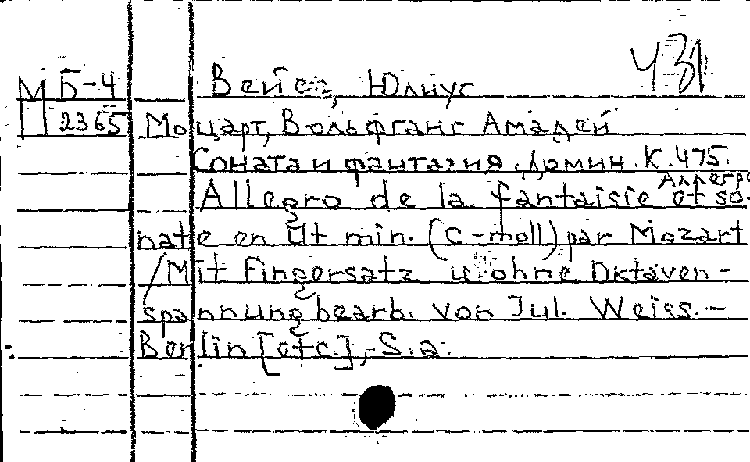 М Б-4 Вейсс, Юлиус 431
П 2365 Моцарт, Вольфганг Амадей
Соната и фантазия. до мин. К. 475.
Аллегро
Allegro de la fantaisie et so-
nate en Ut min. (c-moll) par Mozart
/Mit Fingersatz u. ohne Oktaven-
spannung bearb. von Jul. Weiss.-
Berlin [etc.], S.a.